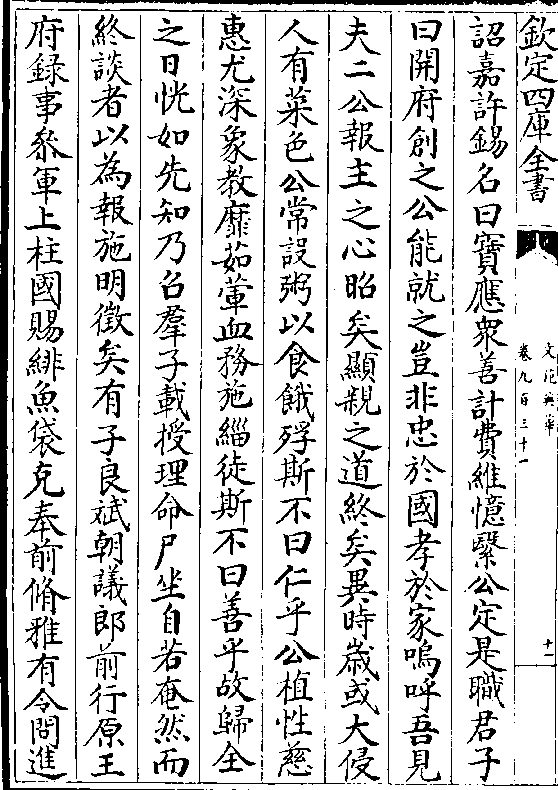 欽定四庫全書
文苑英華
卷九百三十一
十一
詔嘉許錫名曰寶應衆善計費維憶繄公定是職君子
曰開府創之公能就之豈非忠於國孝於家嗚呼吾見
夫二公報主之心昭矣顯親之道終矣異時嵗或大侵
人有菜色公常設粥以食餓殍斯不曰仁乎公植性慈
惠尤深象教靡茹葷血務施緇徒斯不曰善乎故歸全
之日恍如先知乃召羣子載授理命尸坐自若奄然而
終談者以為報施明徵矣有子良斌朝議郎前行原王
府録事叅軍上柱國賜緋魚袋克奉前脩雅有令問進